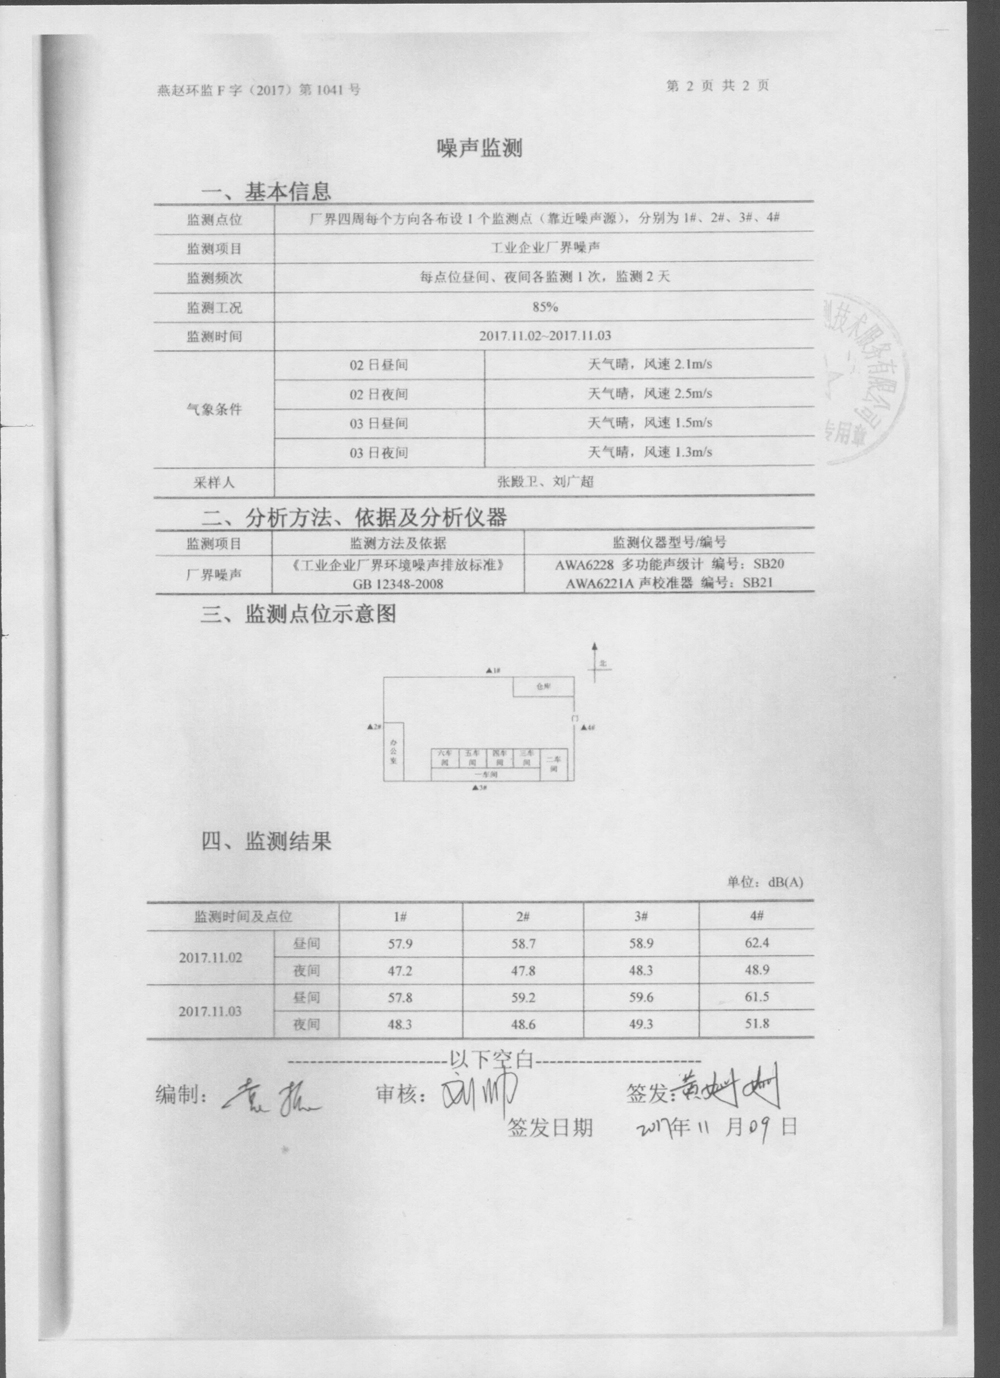 燕赵环监F字（2017）第1041号
第 2 页 共 2 页
噪声监测
一、基本信息
监测点位 厂界四周每个方向各布设1个监测点（靠近噪声源），分别为1#、2#、3#、4#
监测项目 工业企业厂界噪声
监测频次 每点位昼间、夜间各监测1次，监测2天
监测工况 85%
监测时间 2017.11.02~2017.11.03
气象条件
02日昼间 天气晴，风速2.1m/s
02日夜间 天气晴，风速2.5m/s
03日昼间 天气晴，风速1.5m/s
03日夜间 天气晴，风速1.3m/s
采样人 张殿卫、刘广超
技术服务有限公司
专用章
二、分析方法、依据及分析仪器
监测项目 监测方法及依据 监测仪器型号/编号
厂界噪声
《工业企业厂界环境噪声排放标准》
GB 12348-2008
AWA6228 多功能声级计 编号：SB20
AWA6221A 声校准器 编号：SB21
三、监测点位示意图
北
▲1#
仓库
▲2#
门
▲4#
办公室
六车间 五车间 四车间 三车间 二车间
一车间
▲3#
四、监测结果
单位：dB(A)
监测时间及点位 1# 2# 3# 4#
2017.11.02
昼间 57.9 58.7 58.9 62.4
夜间 47.2 47.8 48.3 48.9
2017.11.03
昼间 57.8 59.2 59.6 61.5
夜间 48.3 48.6 49.3 51.8
----------------------以下空白-----------------------
编制： 袁振 审核： 刘帅 签发：黄
签发日期 2017年 11 月 09 日